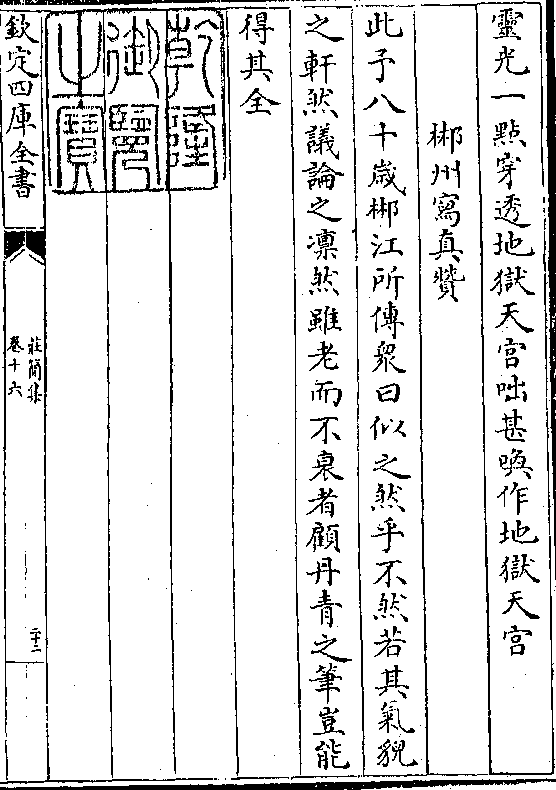 靈光一點穿透地獄天宫咄甚喚作地獄天宫
郴州寫真贊
此予八十歳郴江所傳衆曰似之然乎不然若其氣貌
之軒然議論之凛然雖老而不衰者顧丹青之筆豈能
得其全
乾隆
御覽
之寶
欽定四庫全書
莊簡集
卷十六
二十二